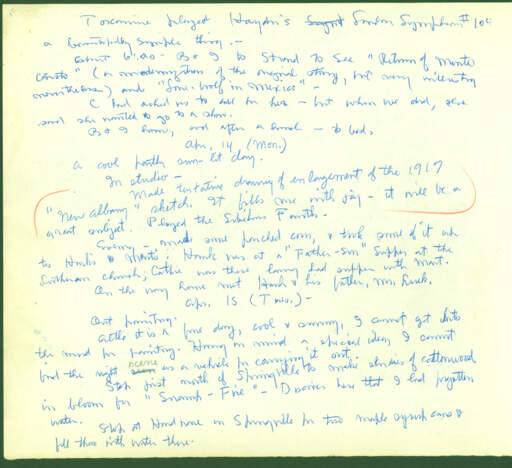 Toscanini played Haydn's London Symphony #104
a beautifully simple thing. —
about 6:00 — B & I to Strand to see "Return of Monte
Cristo" (a modernization of the original story, but very interesting
nonetheless) and "Lone Wolf in Mexico" —
C had asked us to call for her — but when we did, she
said she wanted to go to a show.
B & I home, and after a lunch — to bed.
Apr. 14 (Mon.)
a cool partly sun-lit day.
In studio —
Made tentative drawing of enlargement of the 1917
"New Albany" sketch. It fills me with joy — it will be a
great subject. Played the Sibelius Fourth.
Evening — made some parched corn, & took some of it up
to Hank's & Mart's. Hank was at a "Father-Son" Supper at the
Lutheran church; Cathie was there having had supper with Mart.
On the way home met Hank & his father, Mr.
Apr. 15 (Tues.) —
Out painting.
Altho it is a fine day, cool & sunny, I cannot get into
the mood for painting. Having in mind a special idea, I cannot
find the right scene as a vehicle for carrying it out.
Stop just north of Springville to make studies of cottonwood
in bloom for "Swamp-Fire" — Discover here that I had forgotten
water. Stop at Hardware in Springville for two maple syrup cans &
fill them with water there.